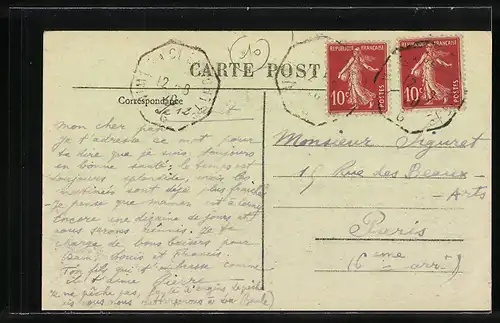 CARTE POST
Correspondance
RÉPUBLIQUE FRANÇAISE
10c
POSTES
RÉPUBLIQUE FRANÇAISE
10c
POSTES
12-8
Le 12
Mon cher papa
Je t'adresse ce mot pour
te dire que je vais toujours
en bonne santé; le temps est
toujours splendide, mais les
matinées sont déjà plus fraîches
- Je pense que maman est à
Encore une dizaine de jours et
nous serons réunis. Je te
charge de bons baisers pour
Jean, Louis et Francis.
Ton fils qui t'embrasse comme
il t'aime Pierre
Je ne pêche pas,
Monsieur Siguret
15 Rue des Beaux-
Arts
Paris
(6ème arrt)